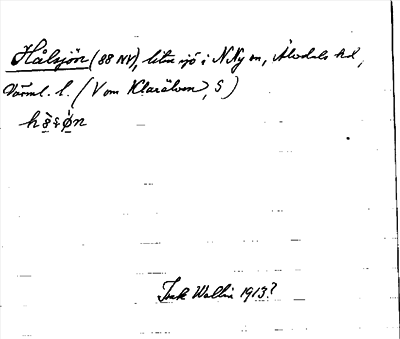 Hålsjön (88 NV), liten sjö i N Ny sn, Älvdals hd,
Värml. l. (V om Klarälven, S)
Wallin 1913?